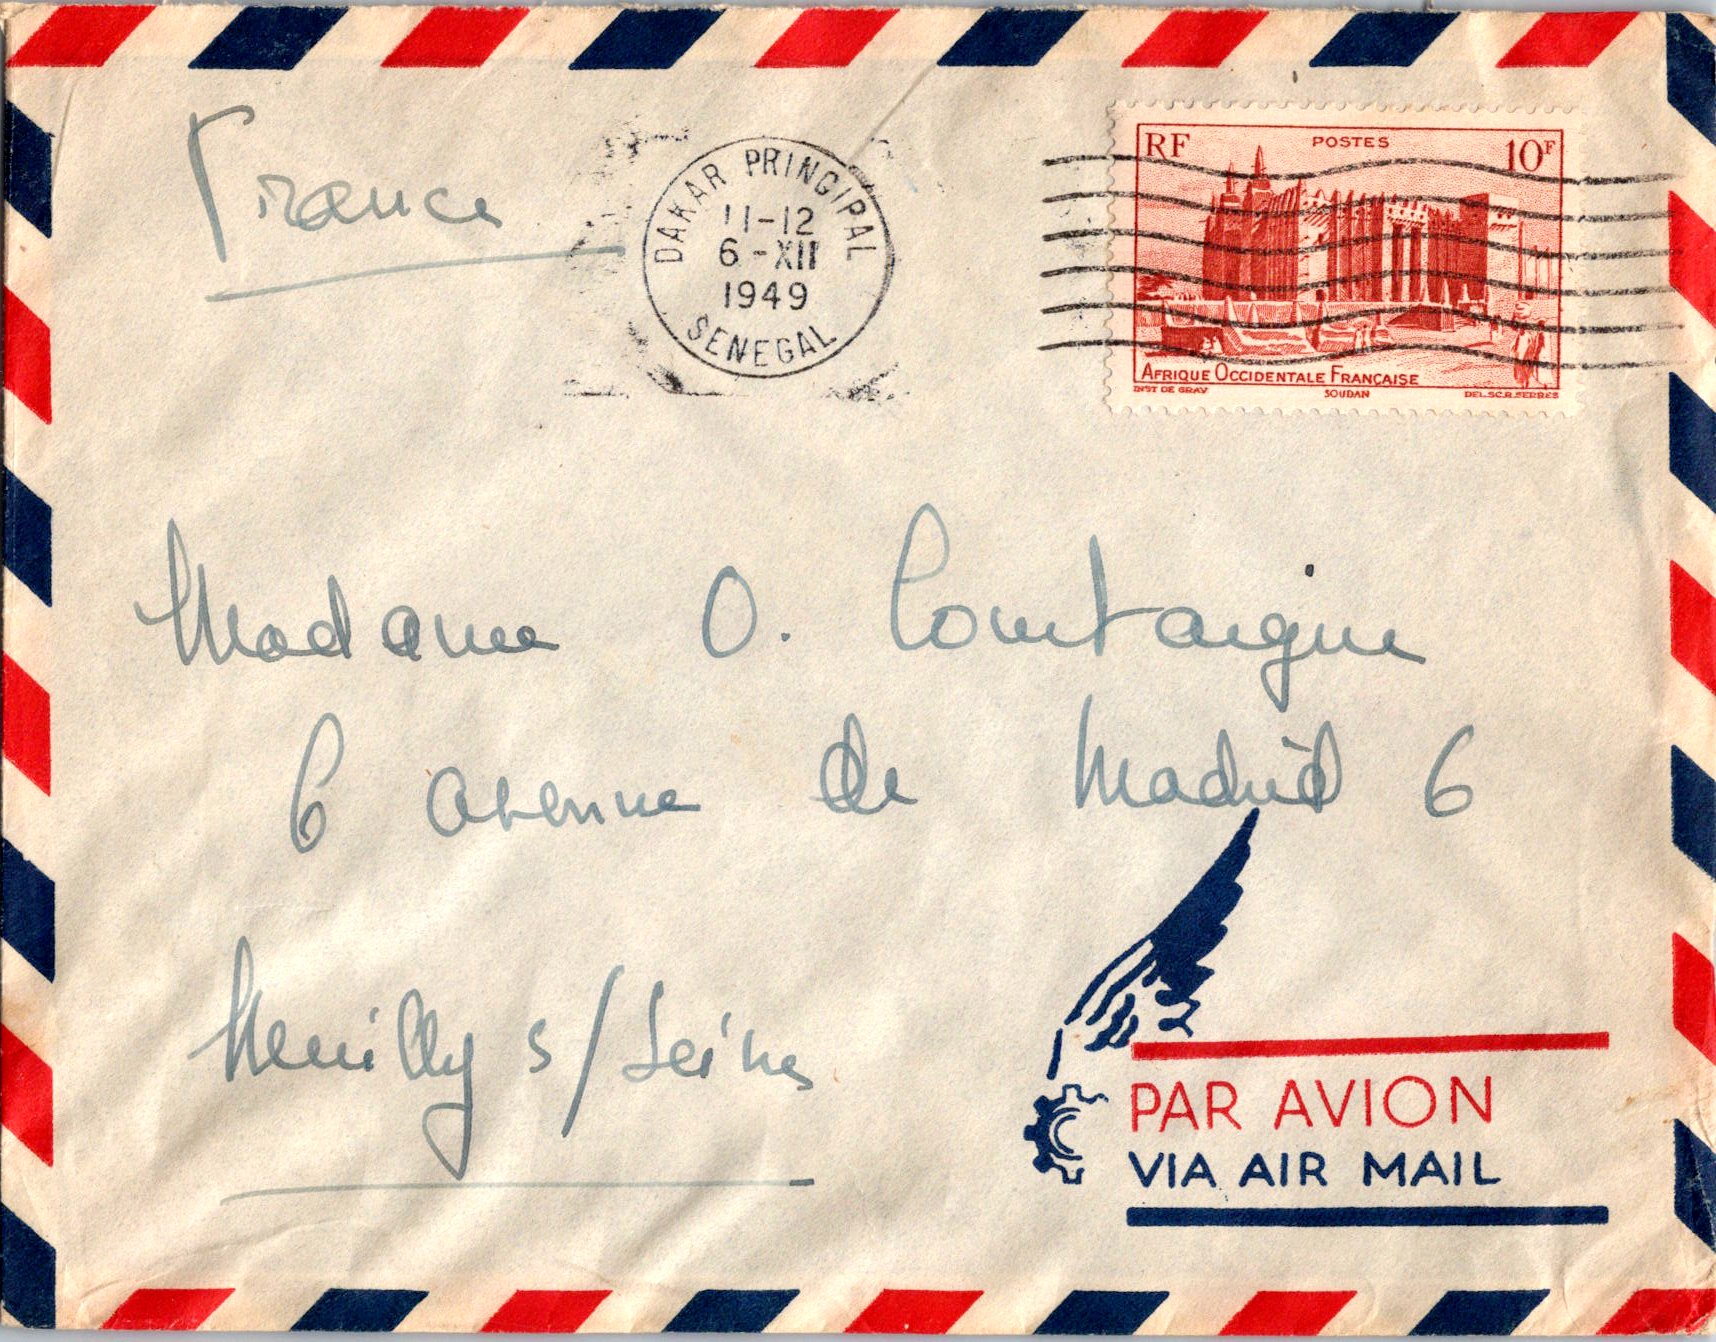 France
DAKAR PRINCIPAL
11-12
6-XII
1949
SENEGAL
RF
POSTES
10F
AFRIQUE OCCIDENTALE FRANÇAISE
INST DE GRAV
SOUDAN
DEL.SC.R.SERRES
Madame O.
6 avenue de Madrid 6
Neuilly s/Seine
PAR AVION
VIA AIR MAIL